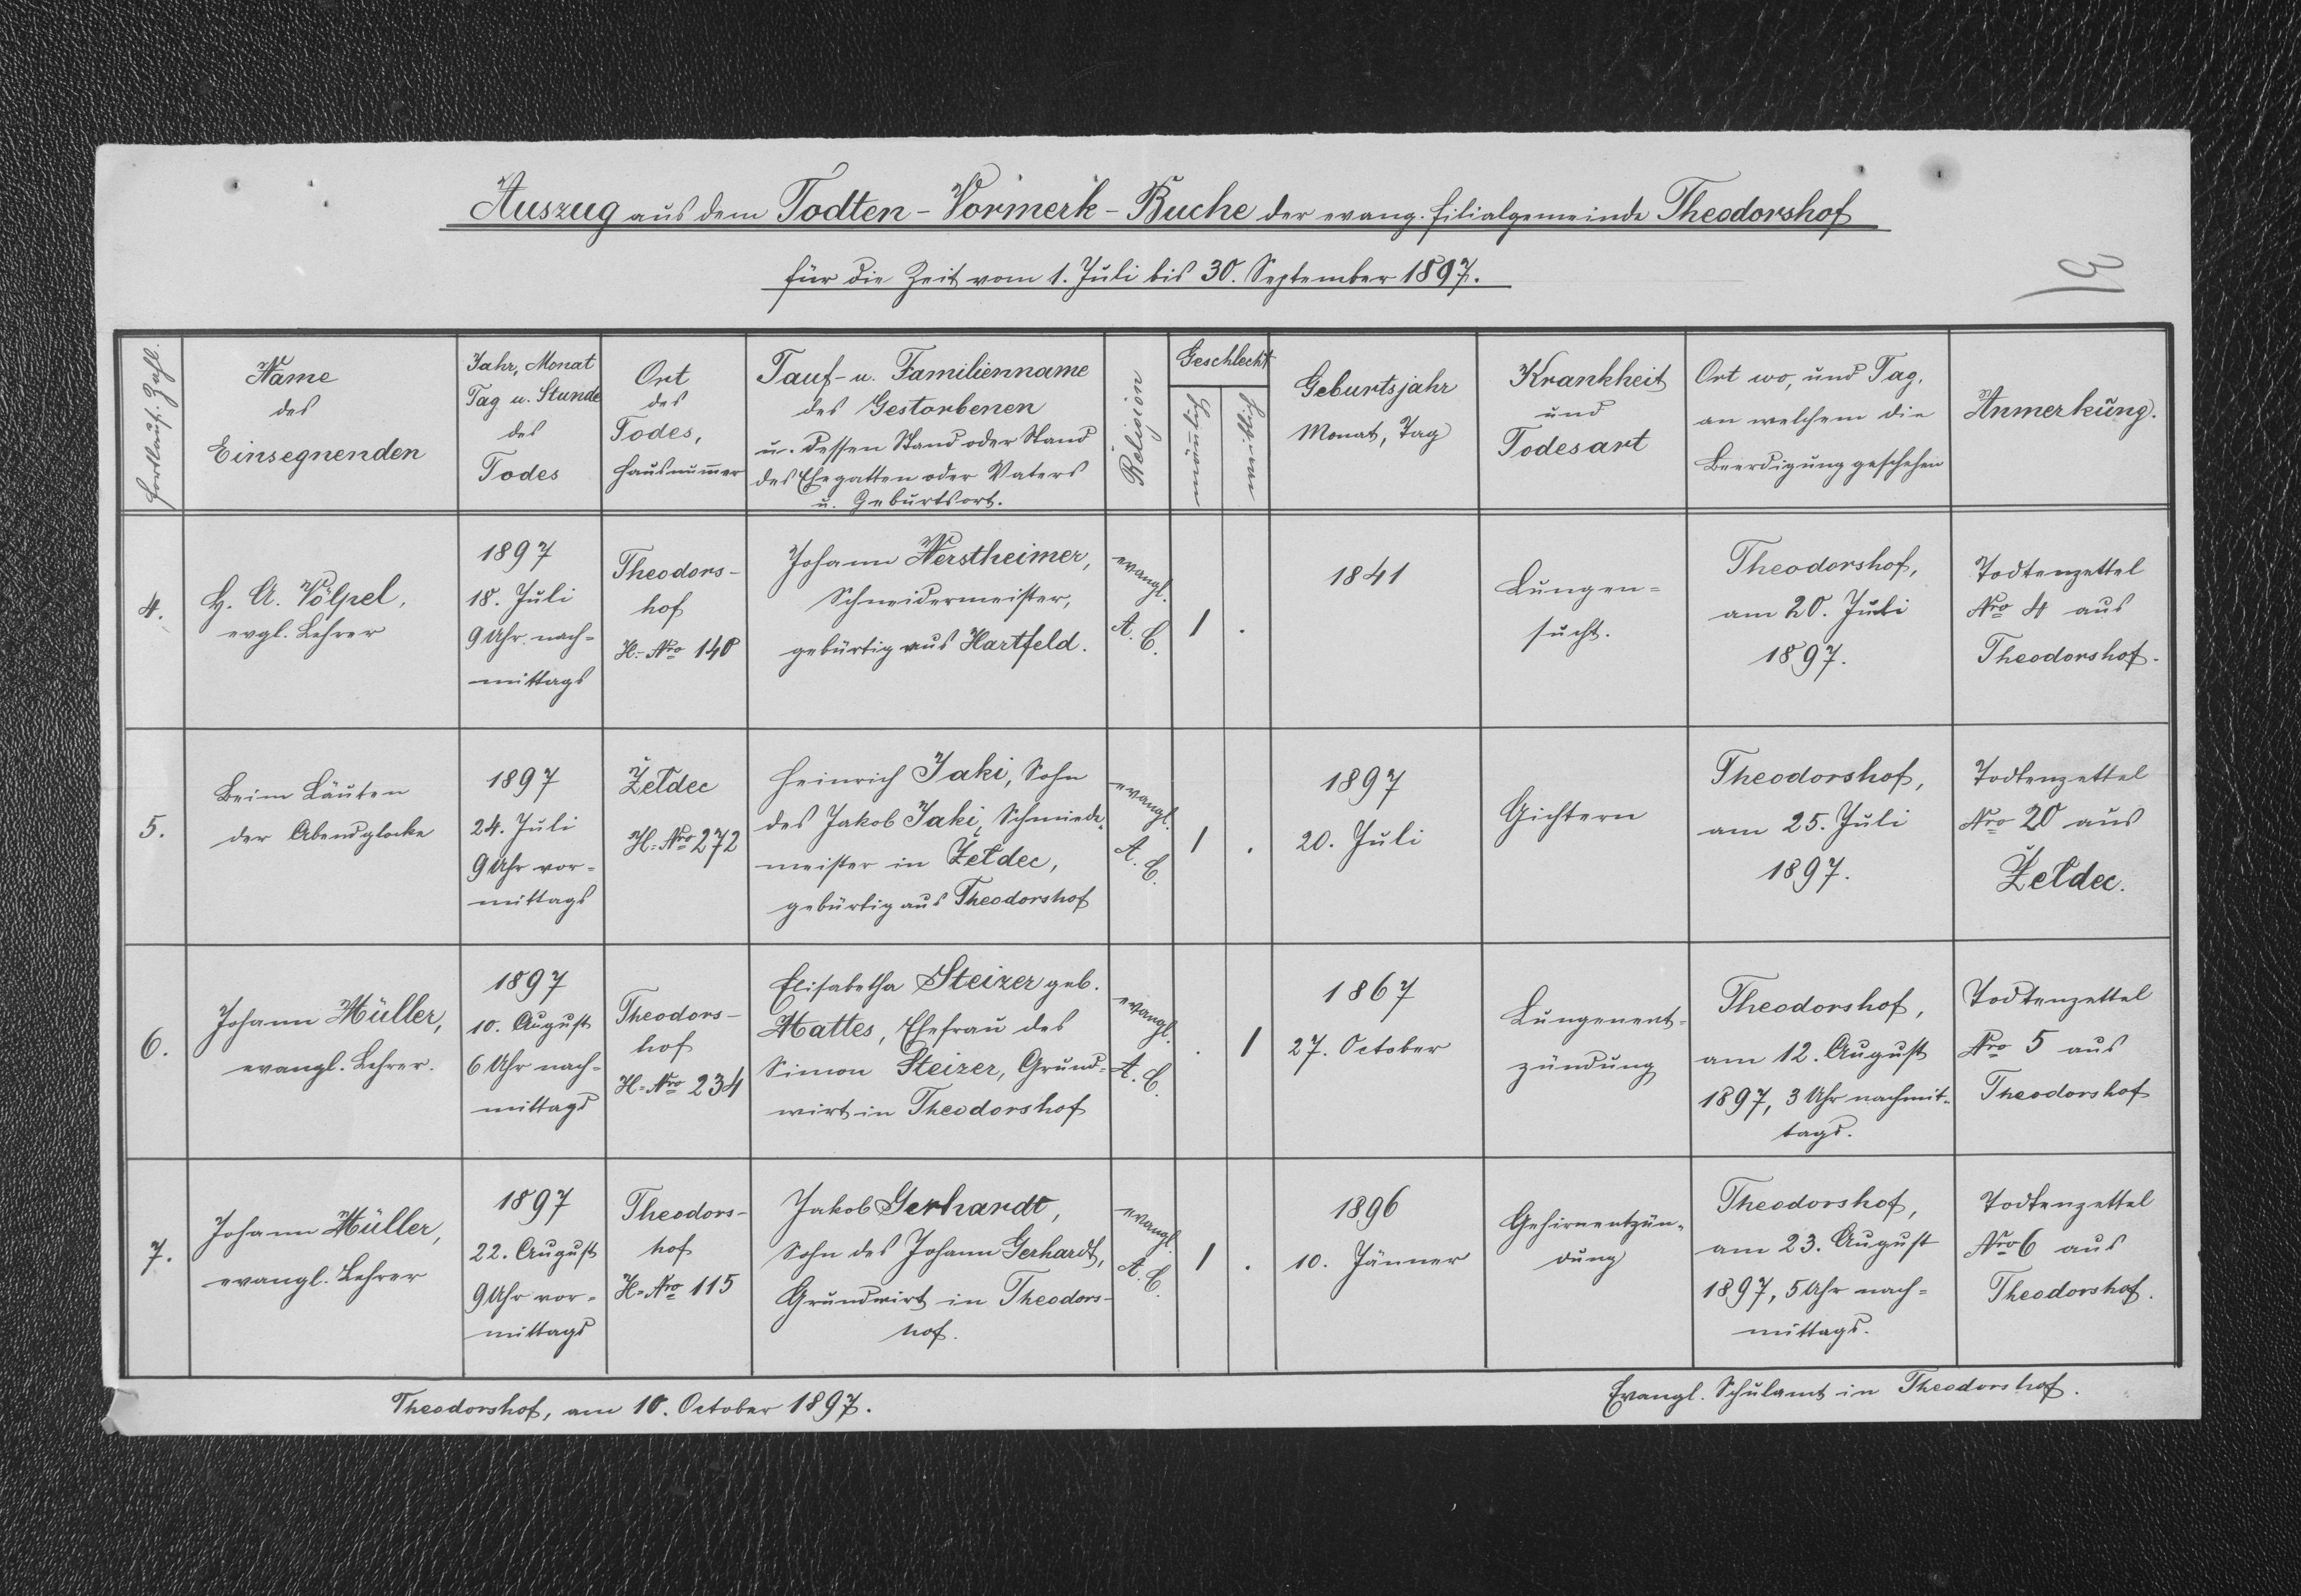 Auszug aus dem Todten-Vormerk-Buche der evang. Filialgemeinde Theodorshof
für die Zeit vom 1. Juli bis 30. September 1897.
Fortlauf. Zahl.
Name
des
Einsegnenden
Jahr, Monat
Tag u. Stunde
des
Todes
Ort
des
Todes,
Hausnummer
Tauf- u. Familienname
des Gestorbenen
u. dessen Stand oder Stand
des Ehegatten oder Vaters
u. Geburtsort.
Religion
Geschlecht
Geburtsjahr
Monat, Tag
Krankheit
und
Todesart
Ort wo, und Tag,
an welchem die
Beerdigung geschehen
Anmerkung.
4.
H. A. Völpel,
evgl. Lehrer
1897
18. Juli
9 Uhr nach=
mittags
Theodors-
hof
H.= Nro 140
Johann Nerstheimer,
Schneidermeister,
gebürtig aus Hartfeld.
evangl.
A. C.
1
.
1841
Lungen=
sucht.
Theodorshof,
am 20. Juli
1897.
Todtenzettel
Nro 4 aus
Theodorshof.
5.
Beim Läuten
der Abendglocke
1897
24. Juli
9 Uhr vor=
mittags
Żełdec
H= Nro 272
Heinrich Jaki, Sohn
des Jakob Jaki, Schmiede=
meister in Żełdec,
gebürtig aus Theodorshof
evangl.
A. C.
1
.
1897
20. Juli
Gichtern
Theodorshof,
am 25. Juli
1897.
Todtenzettel
Nro 20 aus
Żełdec.
6.
Johann Müller,
evangl. Lehrer.
1897
10. August
6 Uhr nach=
mittags
Theodors-
hof
H= Nro 234
Elisabetha Steizer geb.
Mattes, Ehefrau des
Simon Steizer, Grund=
wirt in Theodorshof
evangl.
A. C.
.
1
1867
27. October
Lungenent=
zündung
Theodorshof,
am 12. August
1897, 3 Uhr nachmit=
tags.
Todtenzettel
Nro 5 aus
Theodorshof
7.
Johann Müller,
evangl. Lehrer
1897
22. August
9 Uhr vor=
mittags
Theodors-
hof
H= Nro 115
Jakob Gerhardt,
Sohn des Johann Gerhardt,
Grundwirt in Theodors-
hof.
evangl.
A. C.
1
.
1896
10. Jänner
Gehirnentzün=
dung
Theodorshof,
am 23. August
1897, 5 Uhr nach=
mittags.
Todtenzettel
Nro 6 aus
Theodorshof.
Theodorshof, am 10. October 1897.
Evangl. Schulamt in Theodorshof.